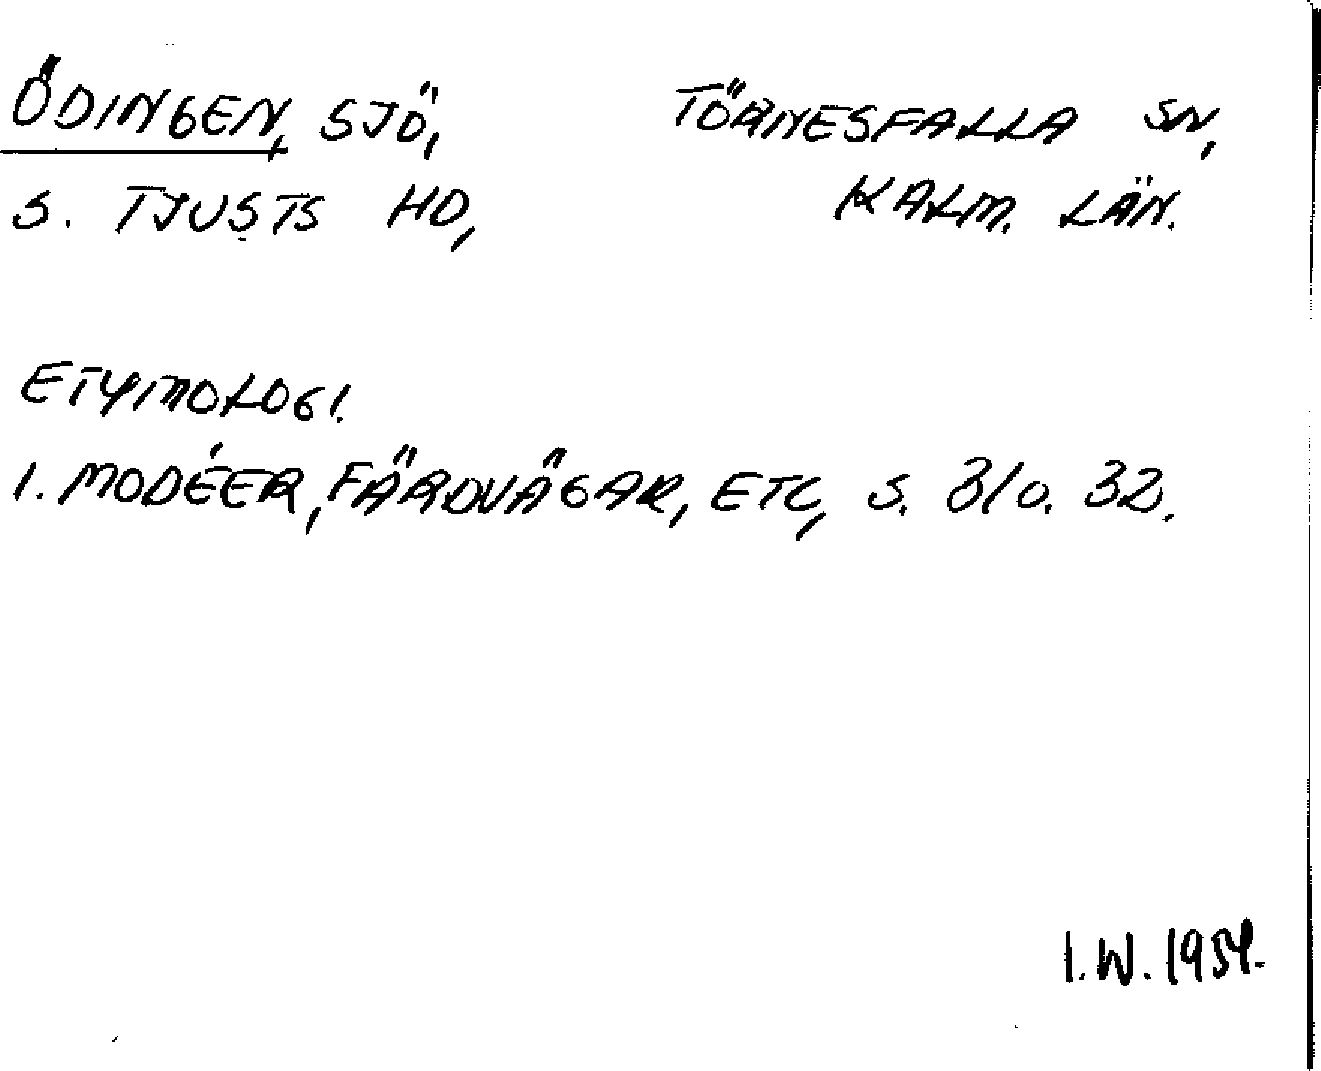 ÖDINGEN, SJÖ, TÖRNESFALLA SN,
S. TJUSTS HD, KALM. LÄN.
ETYMOLOGI.
I. MODÉER, FÄRDVÄGAR, ETC, S. 31 O. 32.
I.W. 1954.